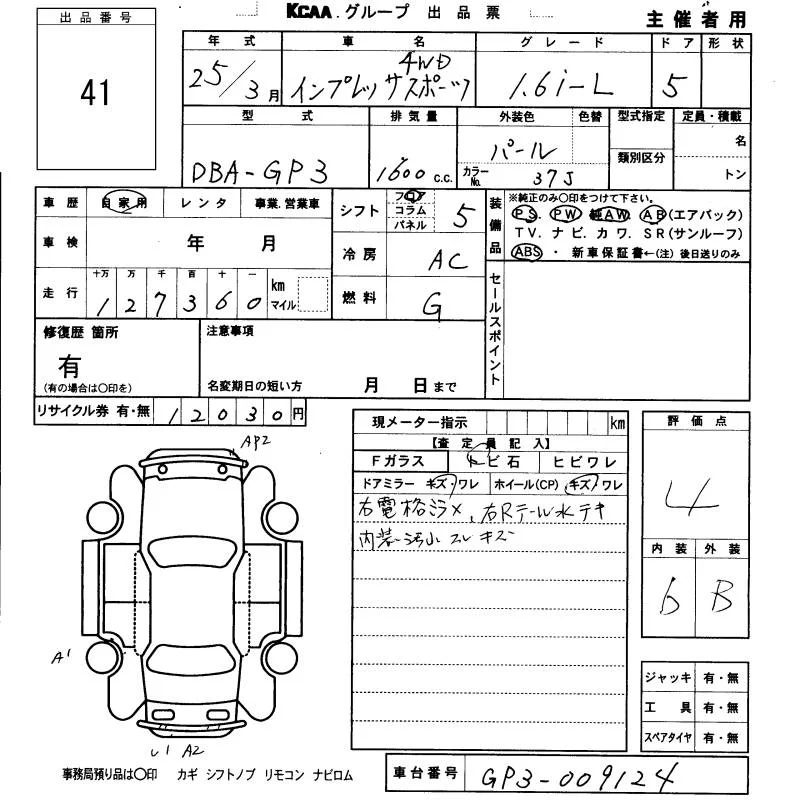 KCAA グループ 出品票
主催者用
出品番号
41
年式 車名 グレード ドア 形状
25/3月 インプレッサスポーツ 4WD 1.6i-L 5
型式 排気量 外装色 色替 型式指定 定員・積載
DBA-GP3 1600 c.c. パール 名
カラーNo. 37J 類別区分 トン
車歴 自家用 レンタ 事業.営業車
シフト フロア コラム パネル 5
装備品 ※純正のみ〇印をつけて下さい。
PS. PW 純AW AB(エアバック)
TV.ナビ.カワ.SR(サンルーフ)
ABS ・ 新車保証書←(注) 後日送りのみ
車検 年 月
冷房 AC
走行 十万 万 千 百 十 一
127360 km マイル
燃料 G
セールスポイント
修復歴 箇所
有
(有の場合は〇印を)
注意事項
名変期日の短い方 月 日まで
リサイクル券 有・無 12030円
現メーター指示 km
【査定員記入】
Fガラス トビ石 ヒビワレ
ドアミラー キズ・ワレ ホイール(CP) キズ・ワレ
右電格ミラ×、右Rテール水テキ
内装汚小 スレ キズ
評価点
4
内装 外装
6 B
AP2
A1
A2
ジャッキ 有・無
工具 有・無
スペアタイヤ 有・無
事務局預り品は〇印 カギ シフトノブ リモコン ナビロム
車台番号 GP3-009124